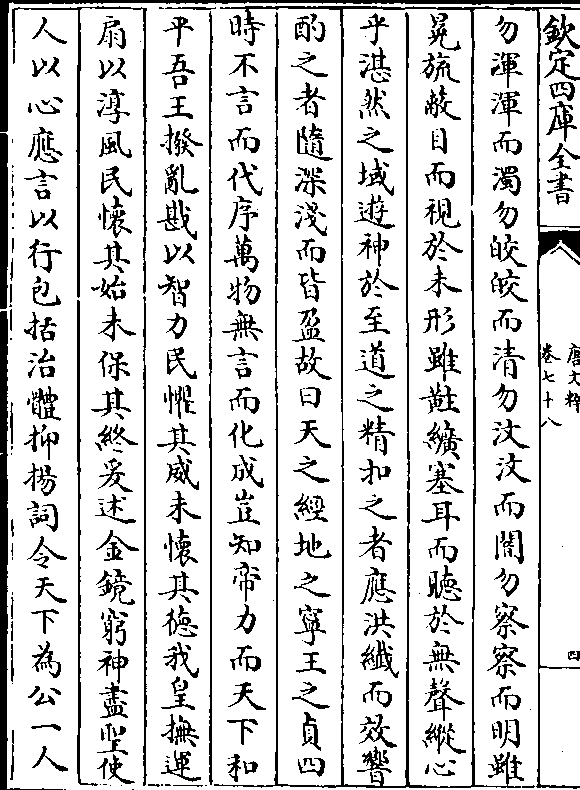 欽定四庫全書
唐文粹
卷七十八
四
勿渾渾而濁勿皎皎而清勿汶汶而闇勿察察而明雖
冕旒蔽目而視於未形雖黈纊塞耳而聽於無聲縱心
乎湛然之域遊神於至道之精扣之者應洪纖而效響
酌之者隨深淺而皆盈故曰天之經地之寧王之貞四
時不言而代序萬物無言而化成豈知帝力而天下和
平吾王撥亂戡以智力民懼其威未懷其德我皇撫運
扇以淳風民懷其始未保其終爰述金鏡窮神盡聖使
人以心應言以行包括治體抑揚詞令天下為公一人